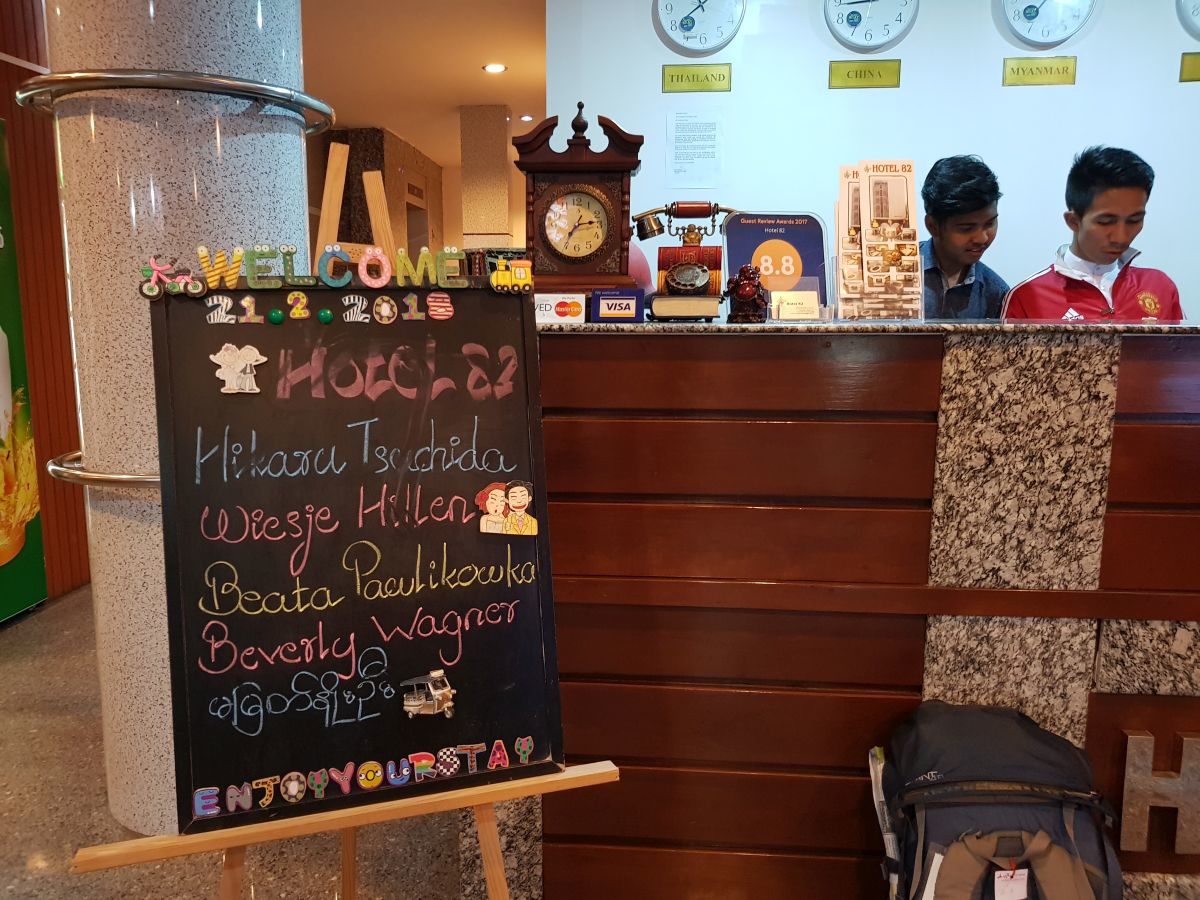 THAILAND
CHINA
MYANMAR
WELCOME
21.2.2018
HOTEL 82
Hikaru Tsuchida
Wiesje Hillen
Beata Pawlikowka
Beverly Wagner
ENJOY YOUR STAY
MasterCard
We welcome
VISA
Guest Review Awards 2017
Hotel 82
8.8
HOTEL 82
adidas
H